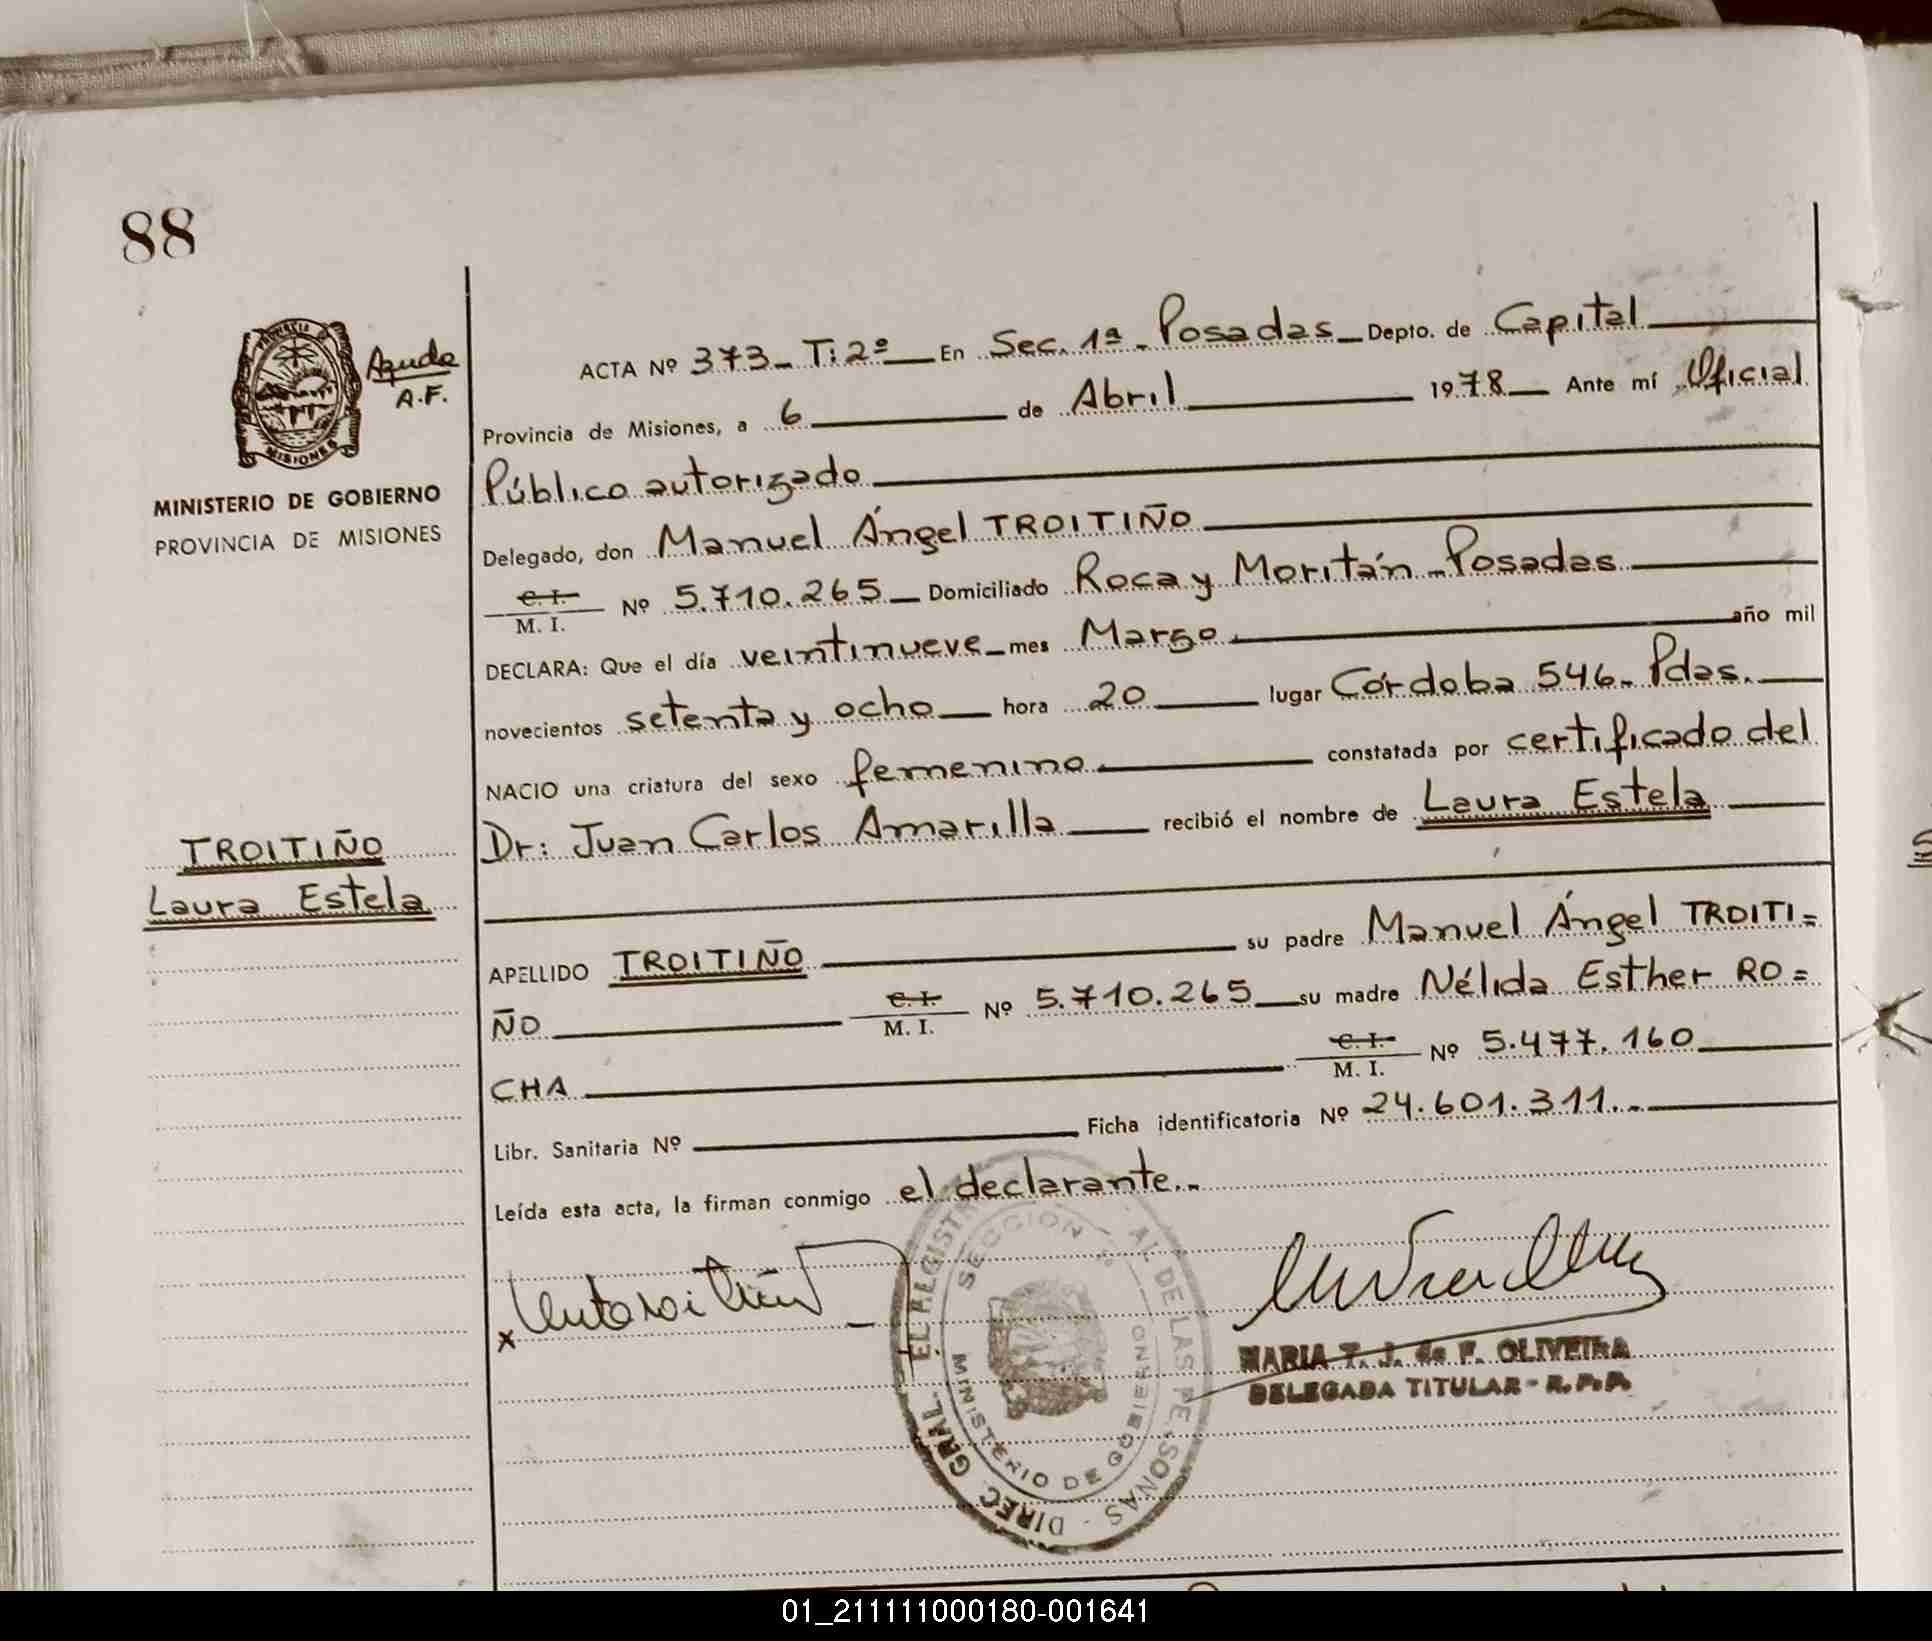 88
Aguda
A.F.
PROVINCIA DE MISIONES
MINISTERIO DE GOBIERNO
PROVINCIA DE MISIONES
ACTA Nº 373_ T: 2º En Sec. 1ª - Posadas_ Depto. de Capital
Provincia de Misiones, a 6 de Abril 1978 Ante mí Oficial
Público autorizado
Delegado, don Manuel Ángel TROITIÑO
C. I. / M. I. Nº 5.710.265_ Domiciliado Roca y Moritán - Posadas
DECLARA: Que el día veintinueve_ mes Marzo año mil
novecientos setenta y ocho hora 20 lugar Córdoba 546- Pdas.
NACIO una criatura del sexo femenino constatada por certificado del
Dr: Juan Carlos Amarilla recibió el nombre de Laura Estela
TROITIÑO
Laura Estela
APELLIDO TROITIÑO su padre Manuel Ángel TROITI=
ÑO C. I. / M. I. Nº 5.710.265 su madre Nélida Esther RO=
CHA C. I. / M. I. Nº 5.477.160
Libr. Sanitaria Nº Ficha identificatoria Nº 24.601.311.-
Leída esta acta, la firman conmigo el declarante.-
x
DIREC. GRAL. DE LAS PERSONAS
SECCION 1º
MINISTERIO DE GOBIERNO
MARIA T. J. de F. OLIVEIRA
DELEGADA TITULAR - R. P. P.
01_211111000180-001641